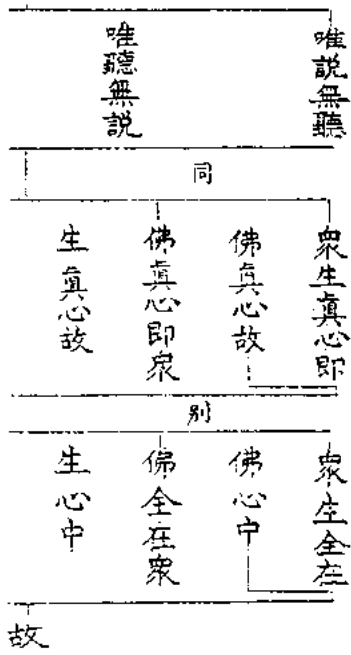 唯説無聽
唯聽無説
同
衆生眞心即
佛眞心故
佛眞心即衆
生眞心故
別
衆生全在
佛心中
佛全在衆
生心中
故